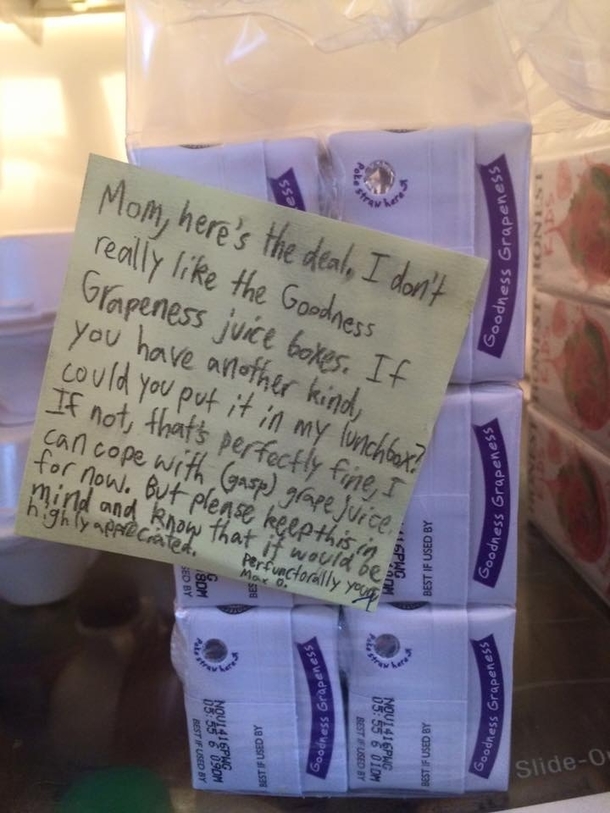 Mom, here's the deal. I don't
really like the Goodness
Grapeness juice boxes. If
you have another kind,
could you put it in my lunchbox?
If not, that's perfectly fine, I
can cope with (gasp) grape juice.
for now. But please keep this in
mind and know that it would be
highly appreciated.
perfunctorally yours
Max O.
ess
Poke straw here
Goodness Grapeness
Goodness Grapeness
BEST IF USED BY
16PWG
BEST
ED BY
Goodness Grapeness
Poke straw here
NOV1416PWG
05:55 6 09DM
BEST IF USED BY
BEST IF USED BY
Goodness Grapeness
Poke straw here
NOV1416PWG
05:55 6 01DM
BEST IF USED BY
BEST IF USED BY
HONEST
KIDS
HONEST
HONEST
Slide-O